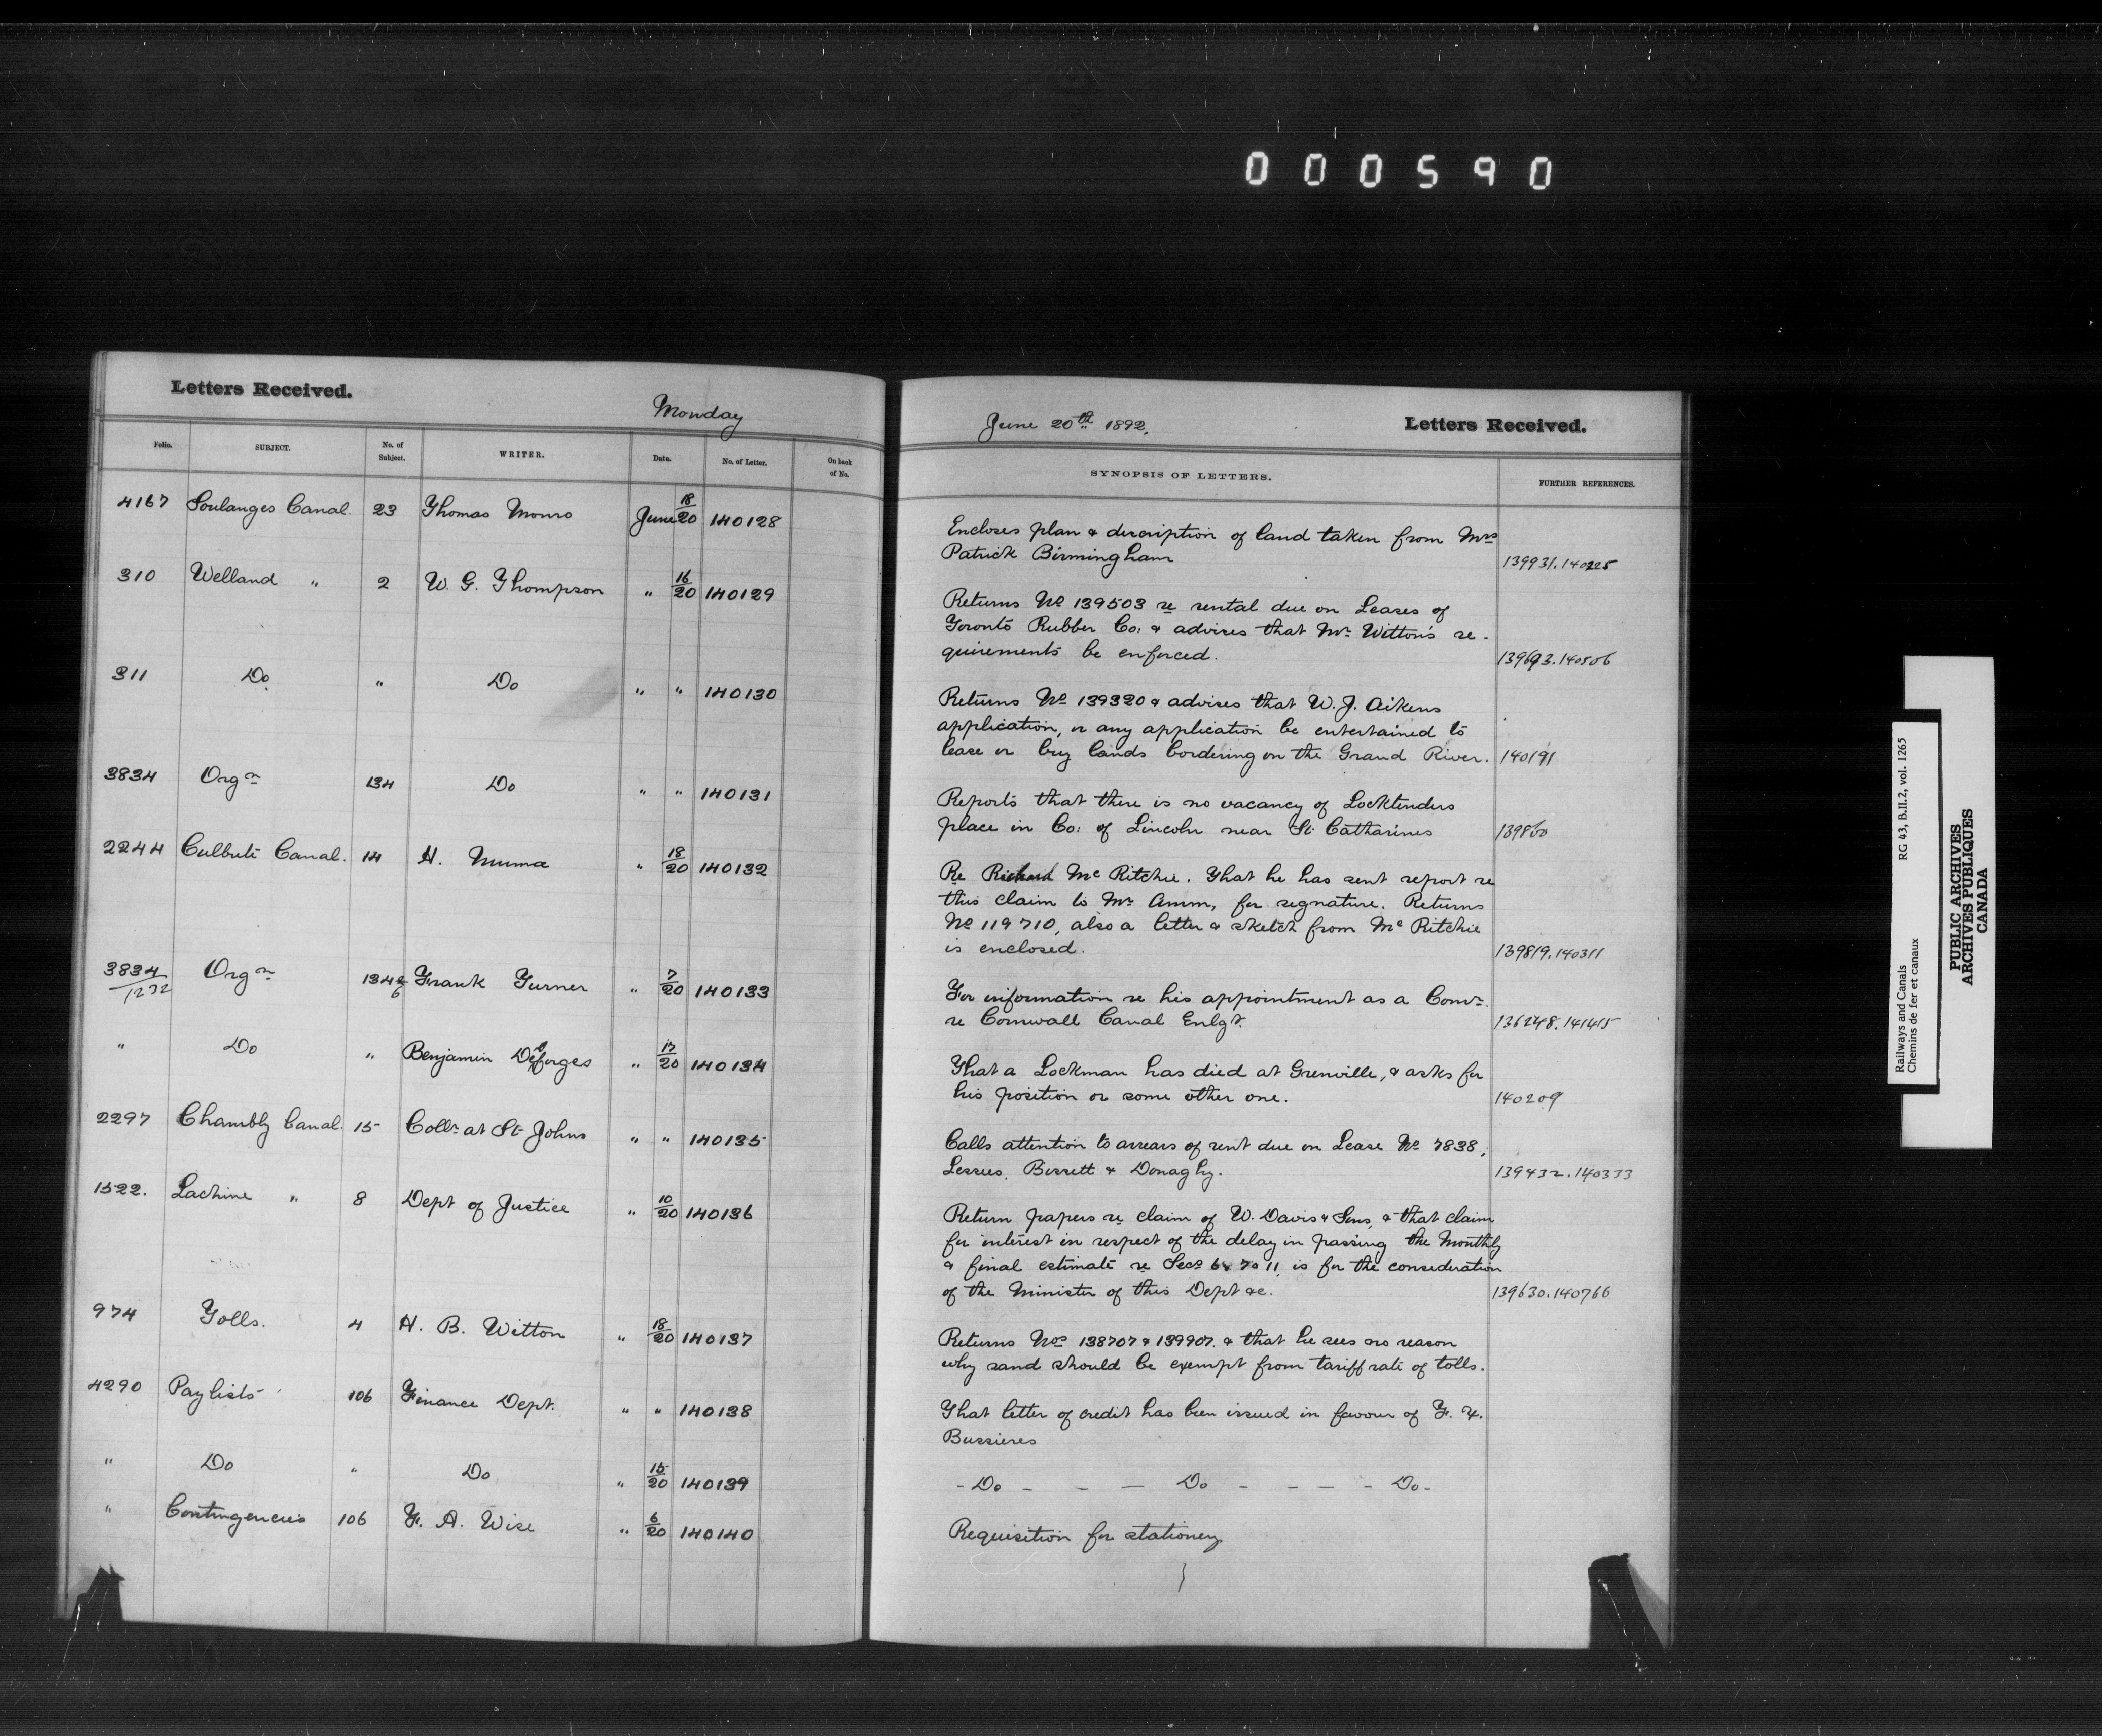 000590
Letters Received.
Monday
Folio. SUBJECT. No. of Subject. WRITER. Date. No. of Letter. On back of No.
4167 Soulanges Canal. 23 Thomas Monro June 18/20 140128
310 Welland " 2 W. G. Thompson " 16/20 140129
311 Do " Do " " 140130
3834 Orgn 134 Do " " 140131
2244 Culbute Canal. 14 H. Muma " 18/20 140132
3834/1232 Orgn 134 & 6 Frank Turner " 7/20 140133
" Do " Benjamin Desforges " 17/20 140134
2297 Chambly Canal. 15 Collr at St Johns " " 140135
1522. Lachine " 8 Dept of Justice " 10/20 140136
974 Tolls. 4 H. B. Witton " 18/20 140137
4290 Paylists 106 Finance Dept. " " 140138
" Do " Do " 15/20 140139
" Contingencies 106 F. A. Wise " 6/20 140140
June 20th 1892.
Letters Received.
SYNOPSIS OF LETTERS. FURTHER REFERENCES.
Encloses plan & description of land taken from Mrs
Patrick Birmingham 139931.140225
Returns No 139503 re rental due on Leases of
Toronto Rubber Co: & advises that Mr Witton's re-
quirements be enforced. 139693.140506
Returns No 139320 & advises that W. J. Aikens
application, or any application be entertained to
lease or buy lands bordering on the Grand River. 140191
Reports that there is no vacancy of Locktenders
place in Co: of Lincoln near St Catharines 139860
Re Richard McRitchie. That he has sent report re
this claim to Mr , for signature. Returns
No 119710, also a letter & sketch from McRitchie
is enclosed. 139819.140311
For information re his appointment as a Comr.
re Cornwall Canal Enlgt. 136248.141415
That a Lockman has died at Grenville, & asks for
his position or some other one. 140209
Calls attention to arrears of rent due on Lease No 7838;
Lessees, Burrett & Donaghy. 139432.140333
Return papers re claim of W. Davis & Sons, & that claim
for interest in respect of the delay in passing the Monthly
& final estimate re Secs 6 & 7 to 11, is for the consideration
of the Minister of this Dept &c. 139630.140766
Returns Nos 138707 & 139907. & that he sees no reason
why sand should be exempt from tariff rate of tolls.
That letter of credit has been issued in favour of F. X.
Bussieres
- Do - - - Do - - - - - Do -
Requisition for stationery
Railways and Canals RG 43, B.II.2, vol. 1265
Chemins de fer et canaux
PUBLIC ARCHIVES
ARCHIVES PUBLIQUES
CANADA